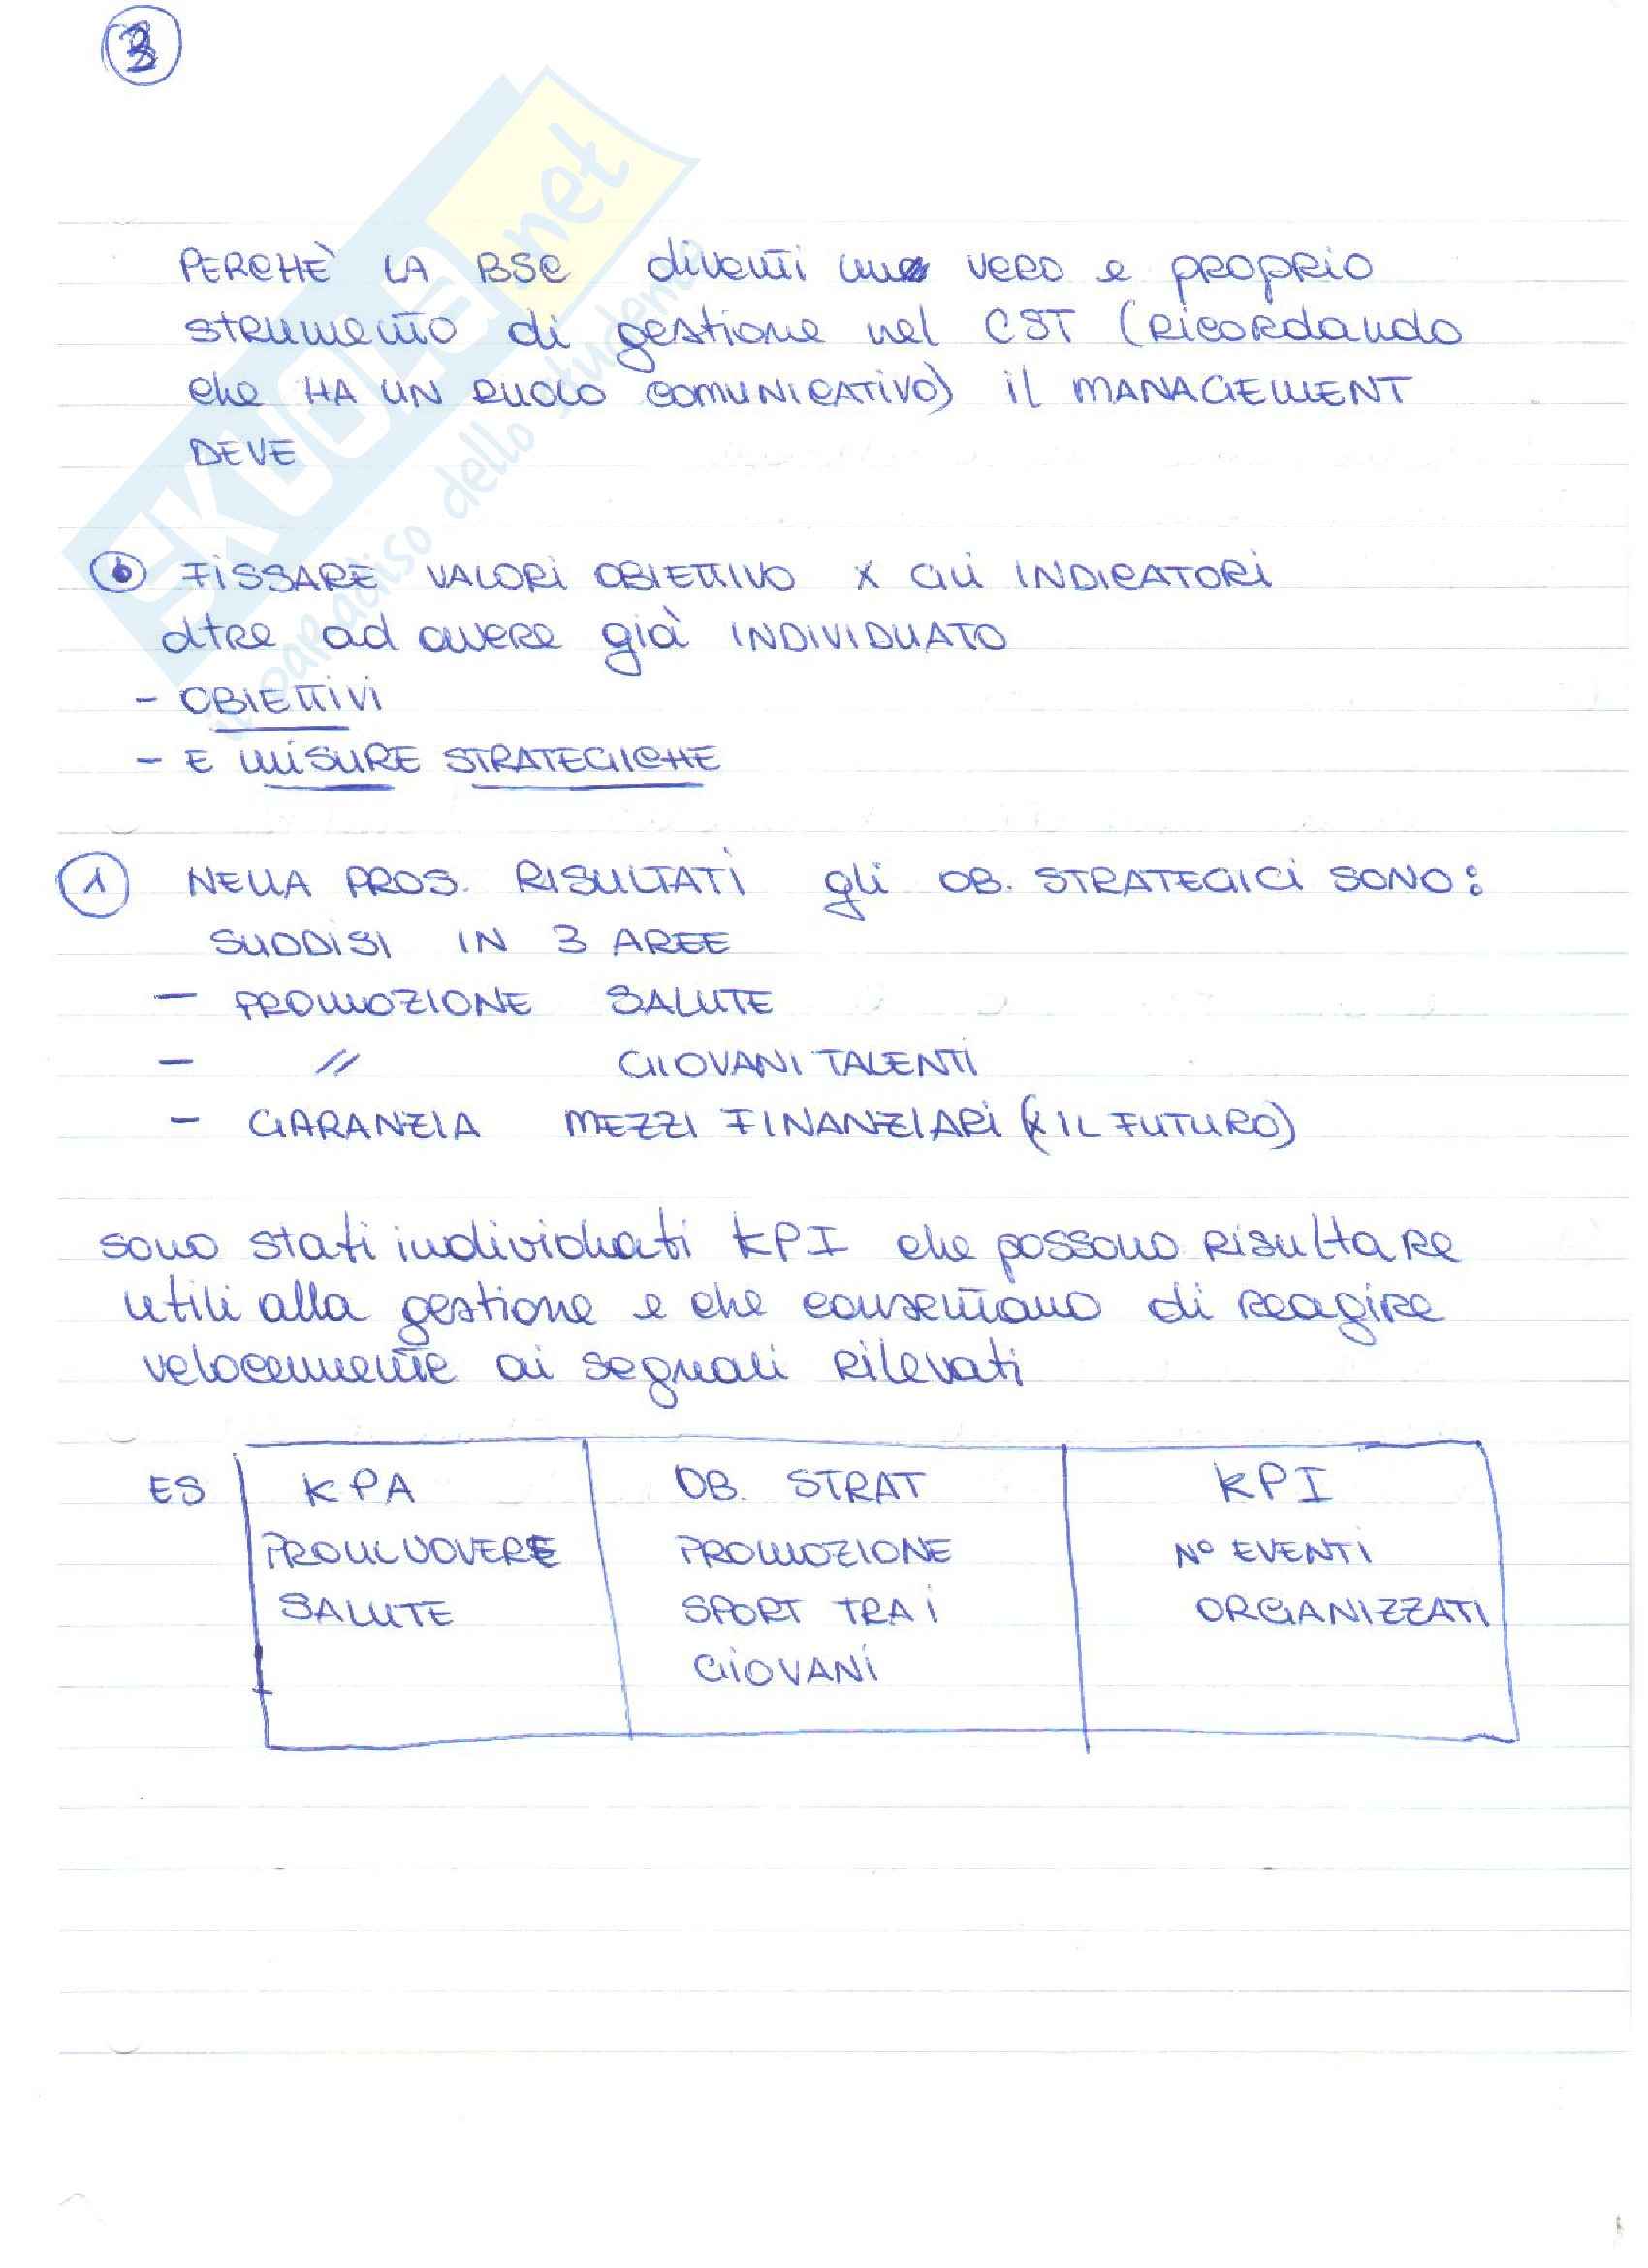 3
SKUOLA.net
il paradiso dello studente
PERCHÈ LA BSC diventi un vero e proprio
strumento di gestione nel CST (ricordando
che HA UN RUOLO COMUNICATIVO) il MANAGEMENT
DEVE
FISSARE VALORI OBIETTIVO X GLI INDICATORI
oltre ad avere già INDIVIDUATO
- OBIETTIVI
- E MISURE STRATEGICHE
1 NELLA PROS. RISULTATI gli OB. STRATEGICI SONO:
SUDDISI IN 3 AREE
- PROMOZIONE SALUTE
- // GIOVANI TALENTI
- GARANZIA MEZZI FINANZIARI (X IL FUTURO)
sono stati individuati KPI che possono risultare
utili alla gestione e che consentano di reagire
velocemente ai segnali rilevati
ES KPA OB. STRAT KPI
PROMUOVERE PROMOZIONE N° EVENTI
SALUTE SPORT TRA i ORGANIZZATI
GIOVANI